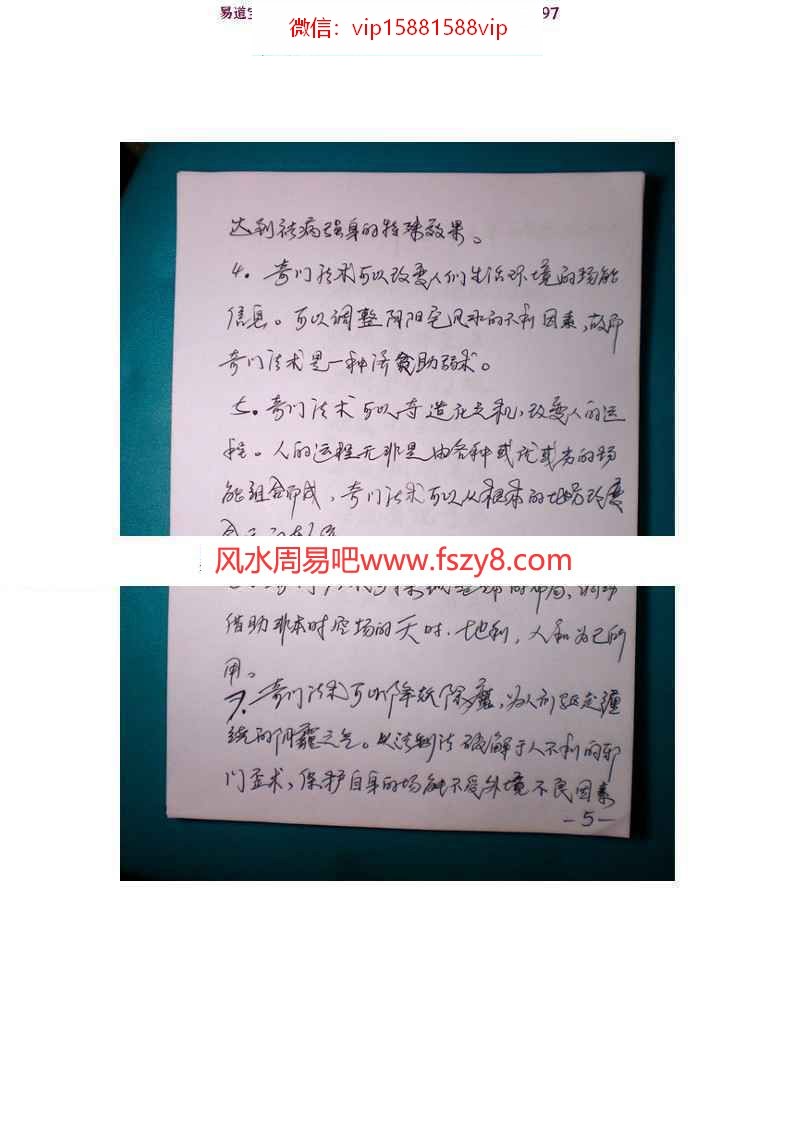 易道
微信：vip15881588vip
97
达到祛病强身的特殊效果。
4。奇门法术可以改变人们生活环境的场能
信息。可以调整阴阳宅风水的不利因素，故即
奇门法术是一种济贫助弱术。
5。奇门法术可以夺造化之机，改变人的运
程。人的运程无非是由各种或优或劣的场
能组合而成，奇门法术可以从根本的场改变
风水周易吧www.fszy8.com
借助非本时空场的天时、地利，人和为己所
用。
7.奇门法术可以降妖除魔，为人们驱走缠
绕的阴霾之气。以法制法破解于人不利的邪
门歪术，保护自身的场能不受外境不良因素
-5-